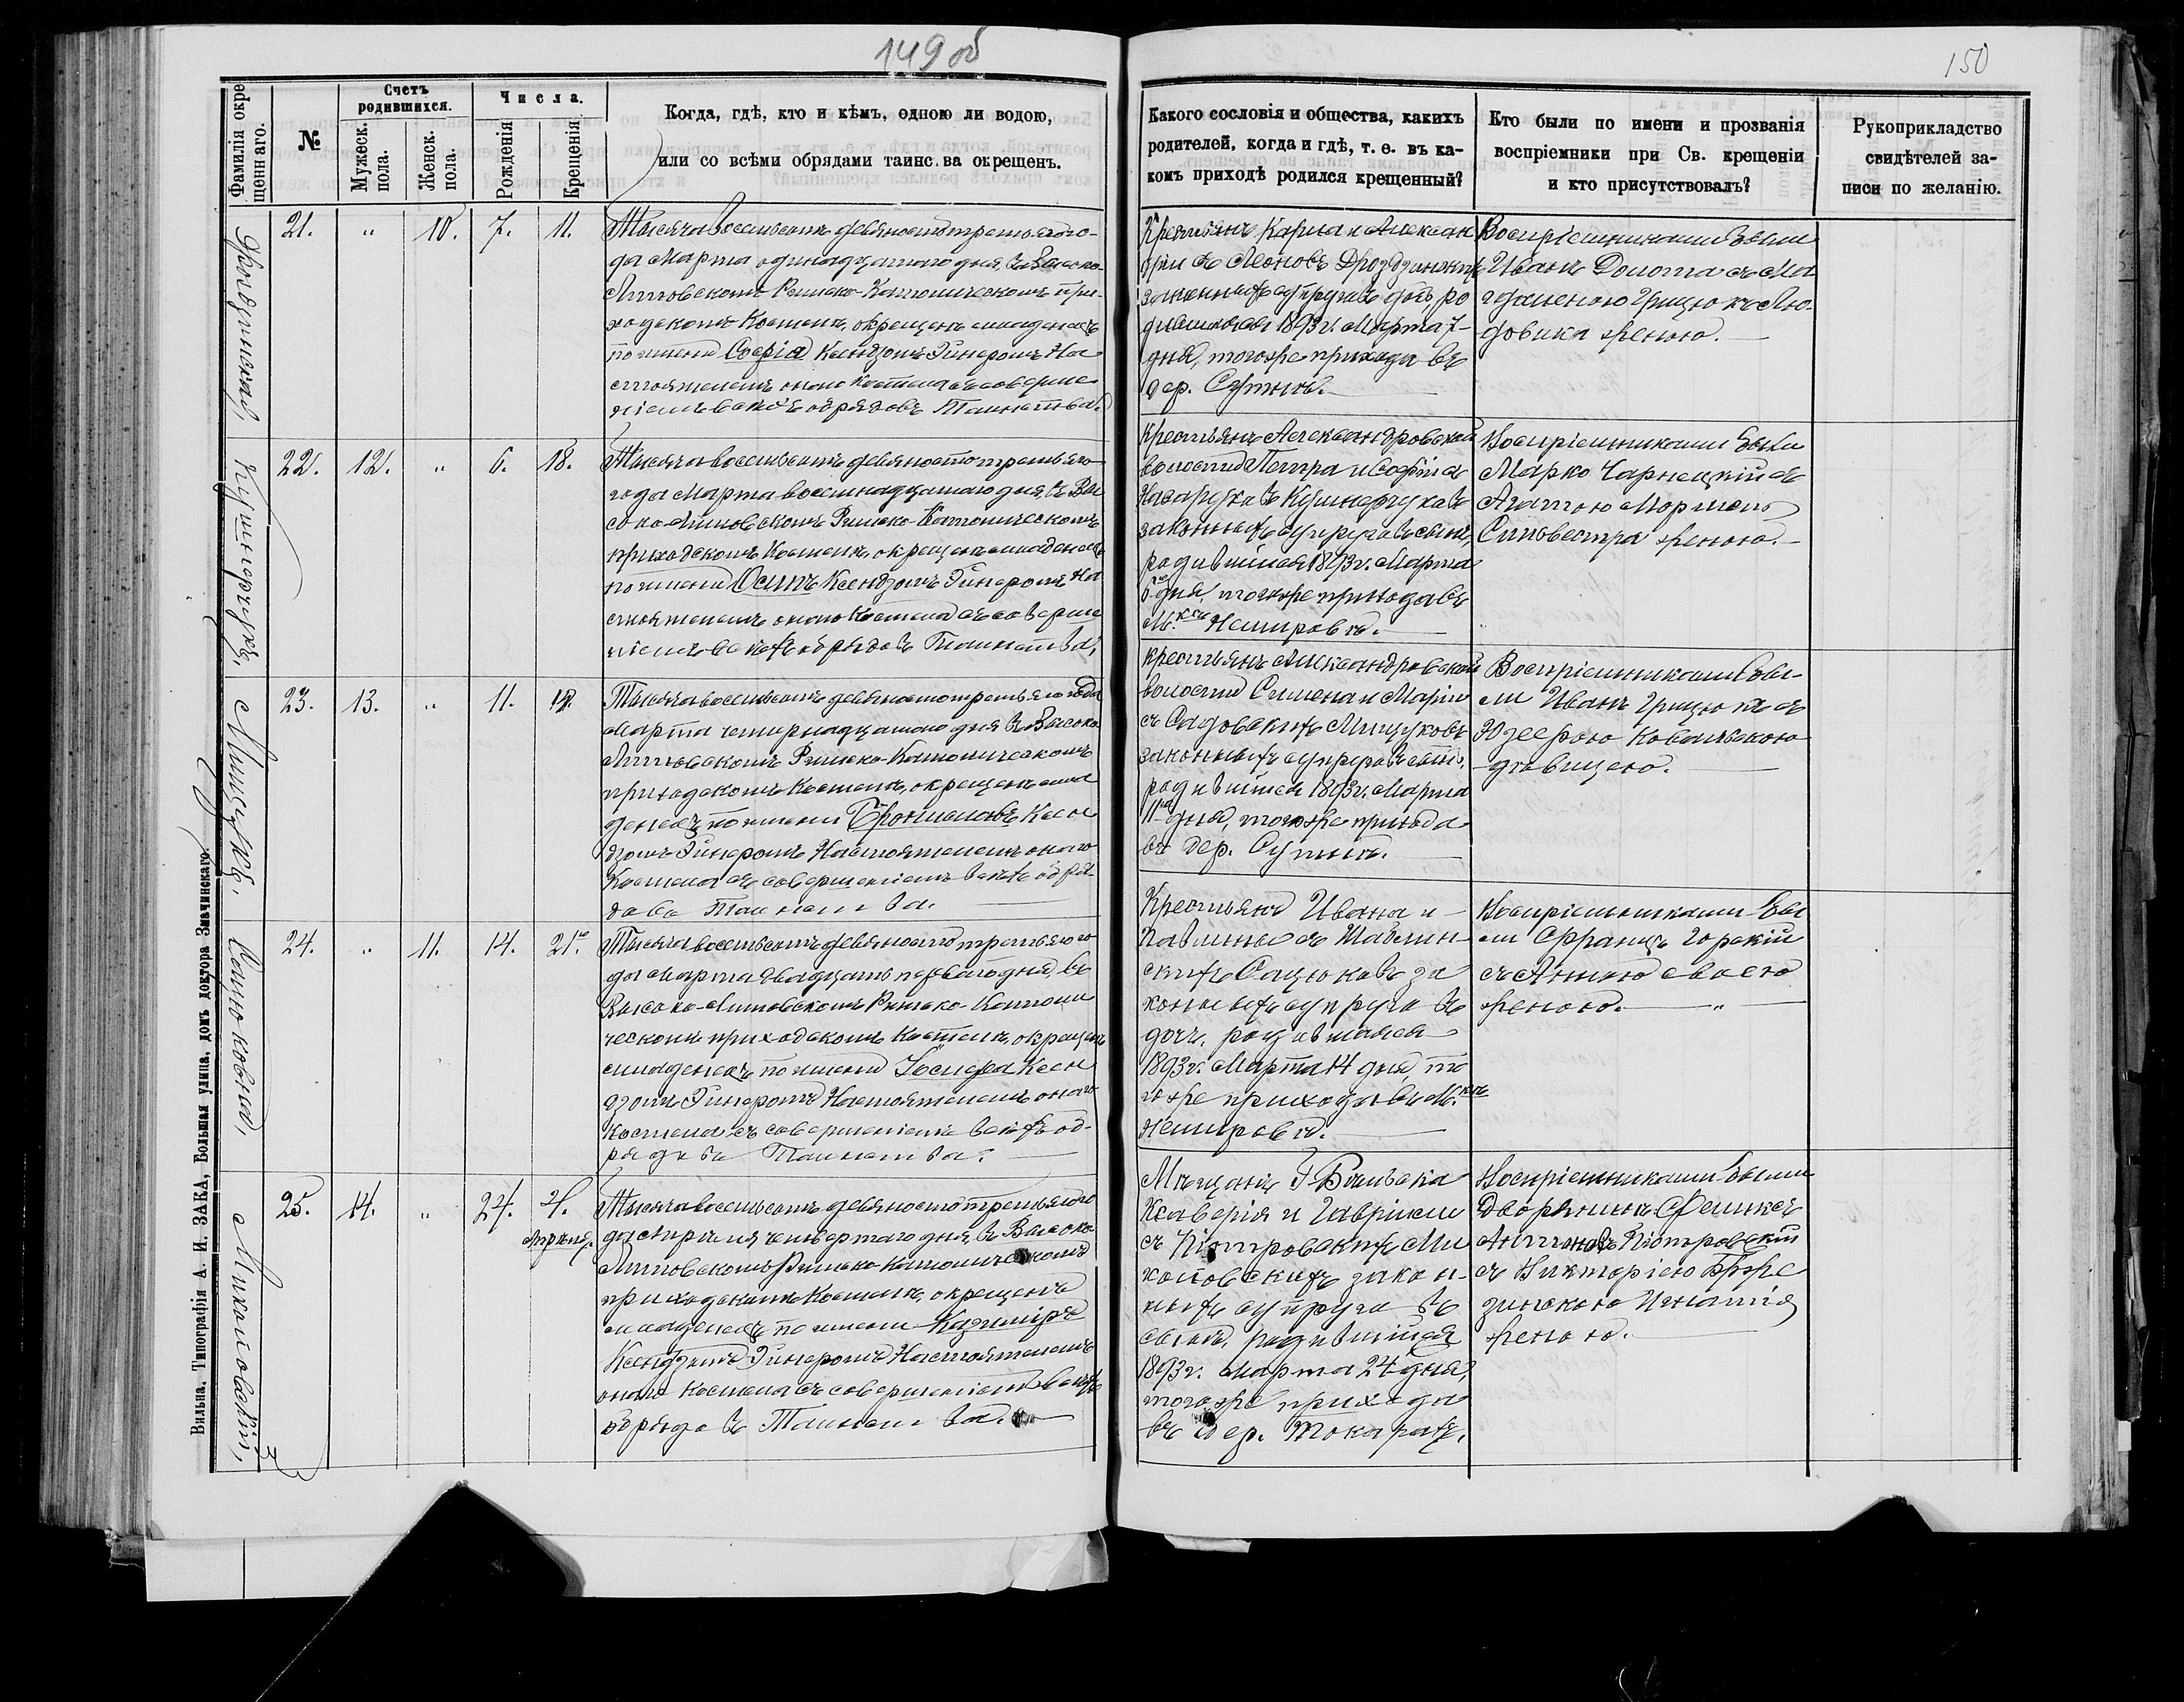 149 об
150
Фамилія окре
щеннаго.
№
Счетъ
родившихся.
Мужеск.
пола.
Женск.
пола.
Числа.
Рожденія
Крещенія
Когда, гдѣ, кто и кѣмъ, одною ли водою,
или со всѣми обрядами таинства окрещенъ.
Какого сословія и общества, какихъ
родителей, когда и гдѣ, т. е. въ ка-
комъ приходѣ родился крещенный?
Кто были по имени и прозванія
воспріемники при Св. крещеніи
и кто присутствовалъ?
Рукоприкладство
свидѣтелей за-
писи по желанію.
21. " 10. 7. 11.
Тысяча восемьсотъ девяносто третьяго го-
да Марта одинадцатаго дня, въ Высоко-
Литовскомъ Римско-Католическомъ при-
ходскомъ Костелѣ, окрещенъ младенецъ
по имени Софія Ксендзомъ Эйнеромъ На
стоятелемъ оного Костела съ соверше
ніемъ всѣхъ обрядовъ Таинства.
Крестьянъ Карла и Алексан
законныхъ супруговъ дочь, ро
дившаяся 1893 г. Марта 7-
дня, того же прихода въ
дер. Сутно.
Воспріемниками были
Иванъ Долота съ Ма
довика женою.
Кушнерчукъ,
22. 12. " 6. 18.
Тысяча восемьсотъ девяносто третьяго
года Марта восемнадцатаго дня, въ Вы
соко-Литовскомъ Римско-Католическомъ
приходскомъ Костелѣ, окрещенъ младенецъ
по имени Осипъ Ксендзомъ Эйнеромъ На
стоятелемъ оного Костела съ соверше
ніемъ всѣхъ обрядовъ Таинства,
Крестьянъ Александровской
волости Петра и Софіи съ
Назаруковъ Кушнерчуковъ
законныхъ супруговъ сынъ,
родившійся 1893 г. Марта
6 дня, того же прихода въ
М.кѣ Немировѣ.
Воспріемниками были
Марко Чарнецкій съ
Агатою
Сильвестра женою.
Мищукъ.
23. 13. " 11.
Тысяча восемьсотъ девяносто третьяго года
Марта четырнадцатаго дня въ Высоко
Литовскомъ Римско-Католическомъ
приходскомъ Костелѣ, окрещенъ мла
денецъ по имени Брониславъ Ксен
дзомъ Эйнеромъ Настоятелемъ оного
Костела съ совершеніемъ всѣхъ обря-
довъ Таинства.
Крестьянъ Александровской
волости Симеона и Маріи
съ Садовскихъ Мищуковъ
законныхъ супруговъ сынъ,
родившійся 1893 г. Марта
11 дня, того же прихода
въ дер. Сутно.
Воспріемниками бы-
ли Иванъ Грицюкъ съ
Юзефою Ковальскою
дѣвицею.
Сацюковна,
24. " 11. 14. 21.
Тысяча восемьсотъ девяносто третьяго го
да Марта двадцать перваго дня, въ
Высоко-Литовскомъ Римско-Католи
ческомъ приходскомъ Костелѣ, окрещенъ
младенецъ по имени Іосифа Ксен
дзомъ Эйнеромъ Настоятелемъ оного
Костела съ совершеніемъ всѣхъ об-
рядовъ Таинства.
Крестьянъ Ивана и
Павлины съ Шавлин-
скихъ Сацюковъ за
конныхъ супруговъ
дочь, родившаяся
1893 г. Марта 14 дня, то
го же прихода въ М.кѣ
Немировѣ.
Воспріемниками бы
ли Францъ Горскій
съ Анною своею
женою. "
Михаловскій,
25. 14. " 24. 4.
Апрѣля.
Тысяча восемьсотъ девяносто третьяго го
да Апрѣля четвертаго дня, въ Высоко
Литовскомъ Римско-Католическомъ
приходскомъ Костелѣ, окрещенъ
младенецъ по имени Казиміръ
Ксендзомъ Эйнеромъ Настоятелемъ
оного Костела съ совершеніемъ всѣхъ
обрядовъ Таинства.
Мѣщанъ Г. Бѣльска
Ксаверія и Гавріели
съ Піотровскихъ Ми
халовскихъ закон-
ныхъ супруговъ
сынъ, родившійся
1893 г. Марта 24 дня,
того же прихода
въ дер. Токарахъ.
Воспріемниками были
Дворянинъ Феликсъ
Піотровскій
съ Викторіею Бже
зинскою Игнатія
женою.
Вильна. Типографія А. И. ЗАКА, Большая улица, домъ доктора Значинскаго.